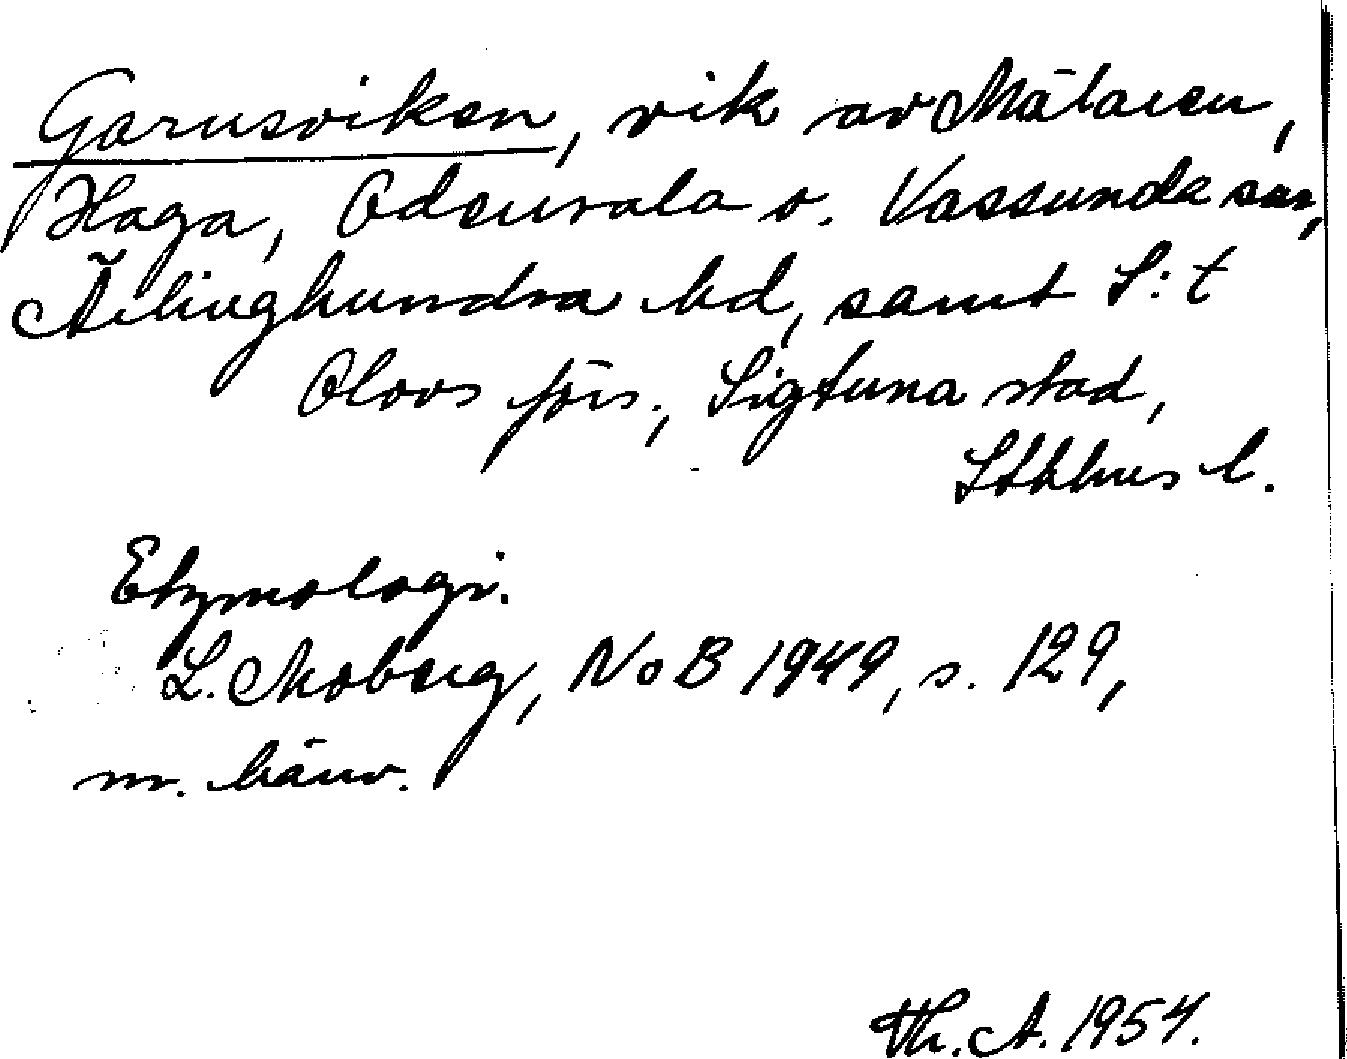 Garnsviken, vik av Mälaren,
Haga, Odensala o. Vassunda snr,
Ärlinghundra hd, samt S:t
Olovs förs., Sigtuna stad,
Sthlms l.
Etymologi.
L. Moberg, NoB 1949, s. 129,
m. hänv.
Th. A. 1954.